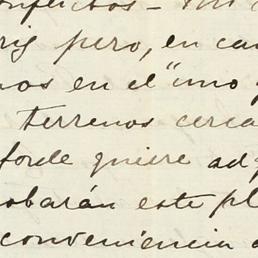 onflictos - 
pero, en ca
nos en el "uno
terrenos cerca
forde quiere ad
obarán este pl
conveniencia